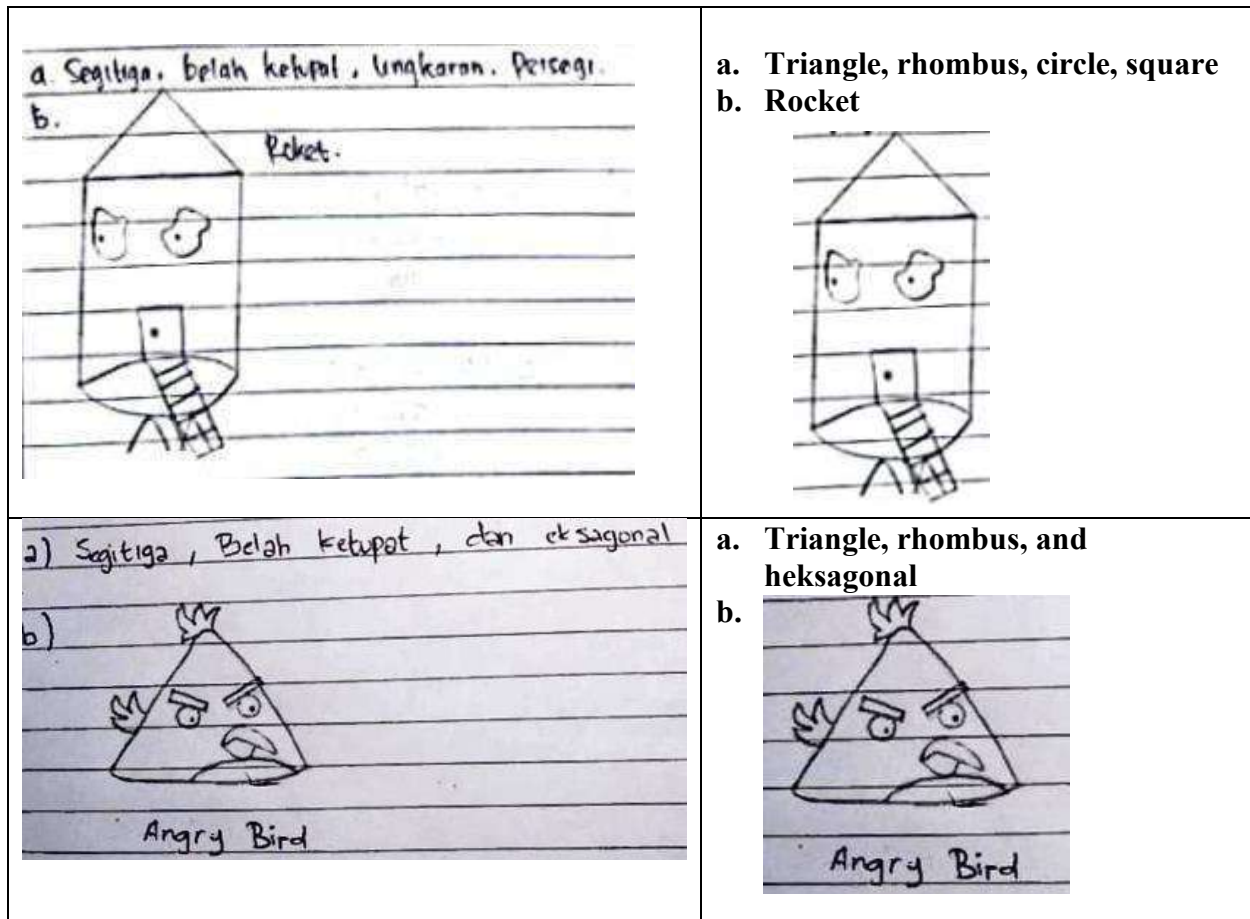 a. Segitiga, belah ketupat, lingkaran. Persegi.
b.
Roket.
a. Triangle, rhombus, circle, square
b. Rocket
a) Segitiga, Belah ketupat, dan eksagonal
b)
Angry Bird
a. Triangle, rhombus, and
heksagonal
b.
Angry Bird